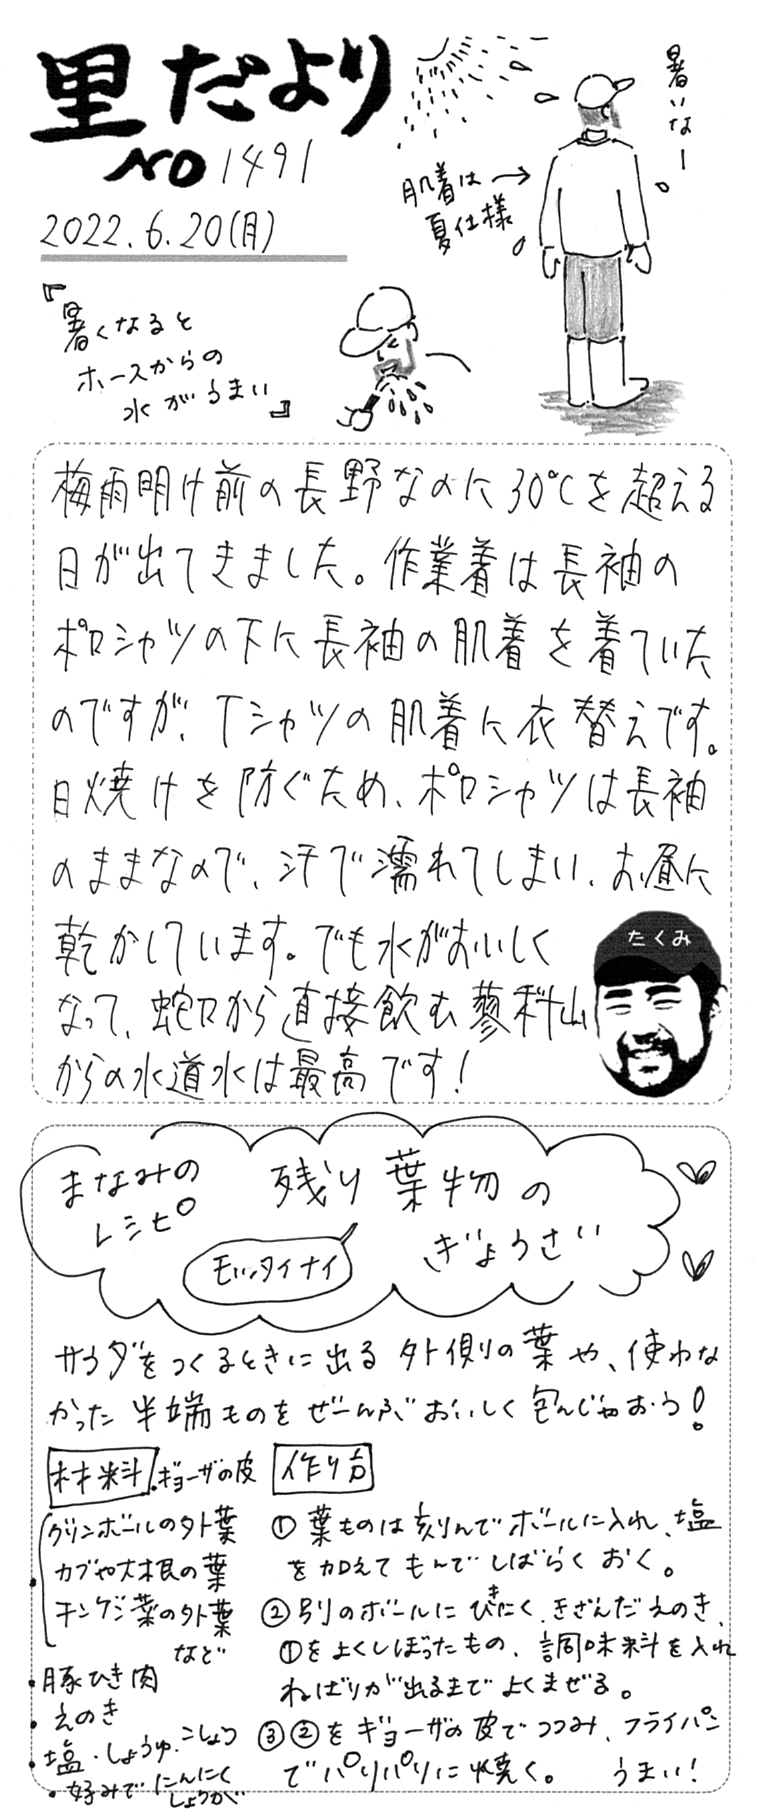 里だより
NO 1491
2022.6.20(月)
暑いなー
肌着は
夏仕様
『暑くなると
ホースからの
水がうまい』
梅雨明け前の長野なのに30℃を超える
日が出てきました。作業着は長袖の
ポロシャツの下に長袖の肌着を着ていた
のですが、Tシャツの肌着に衣替えです。
日焼けを防ぐため、ポロシャツは長袖
のままなので、汗で濡れてしまい、お昼に
乾かしています。でも水がおいしく
なって、蛇口から直接飲む蓼科山
からの水道水は最高です!
たくみ
まなみの
レシピ
残り葉物の
ぎょうざ
モッタイナイ
サラダをつくるときに出る外側の葉や、使わな
かった半端ものをぜーんぶおいしく包んじゃおう!
材料
・ギョーザの皮
・グリンボールの外葉
カブや大根の葉
チンゲン菜の外葉
など
・豚ひき肉
・えのき
・塩・しょうゆ・こしょう
・好みでにんにく
しょうが
作り方
①葉ものは刻んでボールに入れ、塩
を加えてもんでしばらくおく。
②別のボールにひき肉、きざんだえのき、
①をよくしぼったもの、調味料を入れ
ねばりが出るまでよくまぜる。
③②をギョーザの皮でつつみ、フライパン
でパリパリに焼く。 うまい!